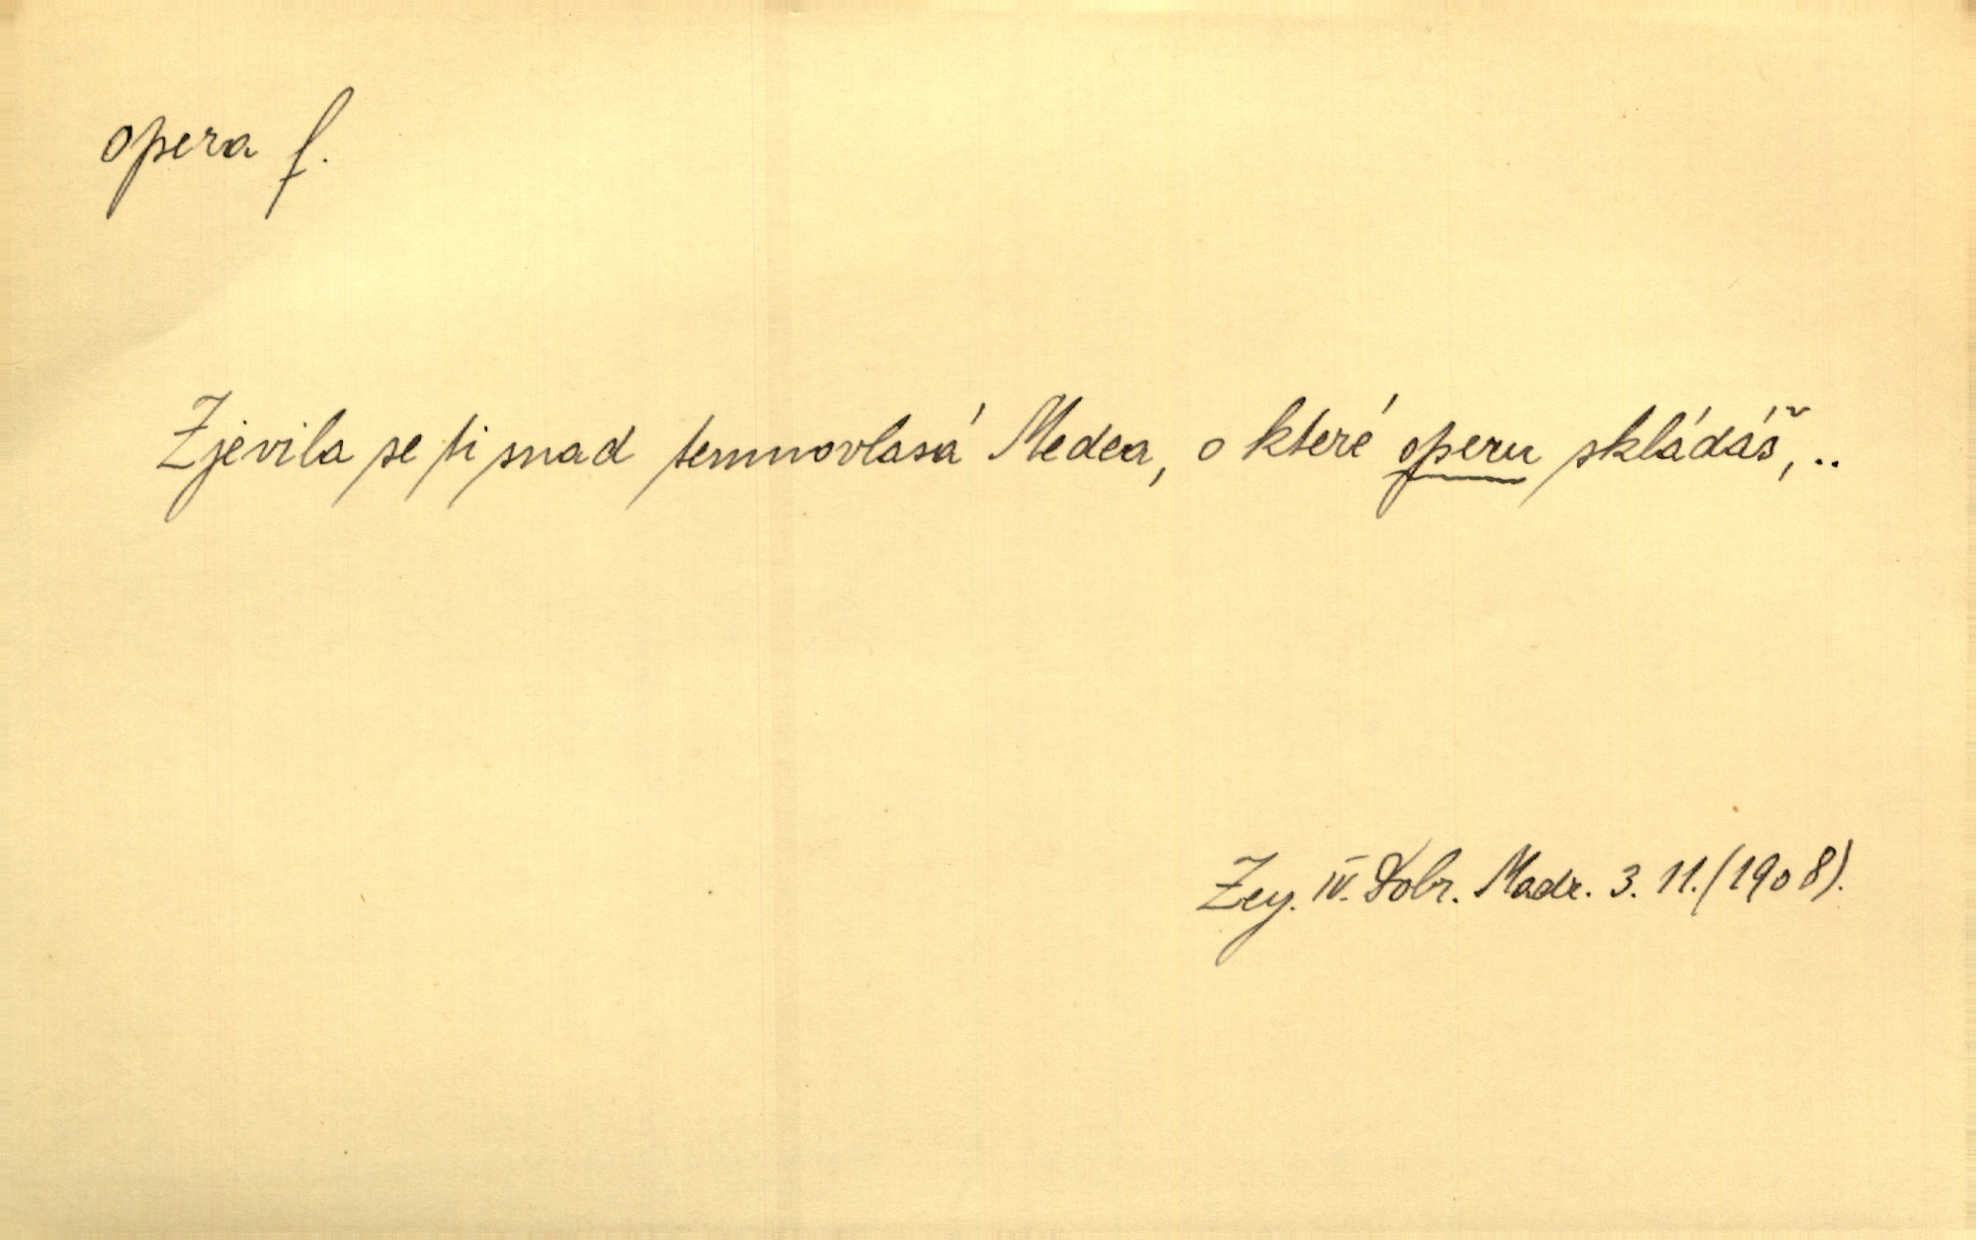 opera f.
Zjevila se ti snad temnovlasá Medea, o které operu skládáš,..
Zey. IV. Dobr. Madr. 3. 11. (1908).